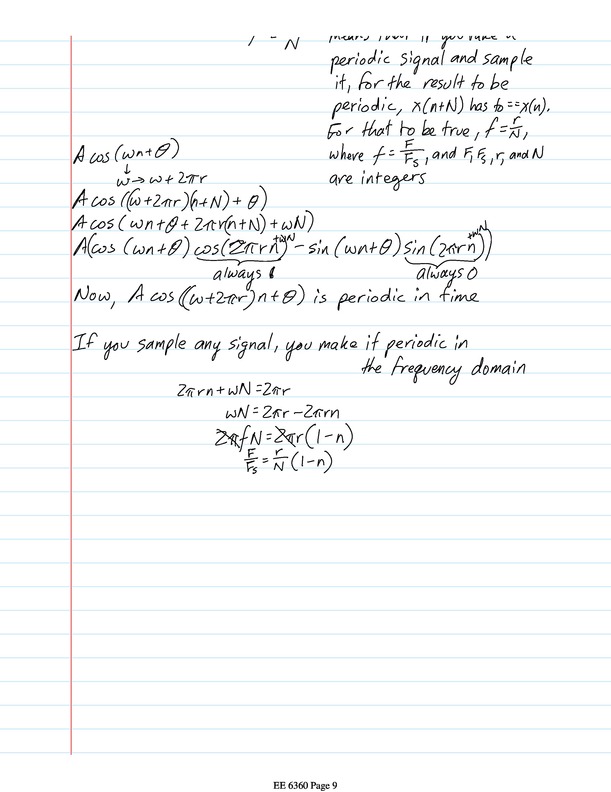 N
periodic signal and sample
it, for the result to be
periodic, x(n+N) has to == x(n).
For that to be true, f = r/N,
where f = F/Fs, and F, Fs, r, and N
are integers
A cos(ωn+θ)
↓
ω → ω + 2πr
A cos((ω+2πr)(n+N) + θ)
A cos(ωn+θ + 2πr(n+N) + ωN)
A(cos (ωn+θ) cos(2πrn+ωN) − sin (ωn+θ) sin(2πrn+ωN))
always 1 always 0
Now, A cos((ω+2πr)n+θ) is periodic in time
If you sample any signal, you make it periodic in
the frequency domain
2πrn + ωN = 2πr
ωN = 2πr − 2πrn
2πfN = 2πr(1−n)
F/Fs = r/N (1−n)
EE 6360 Page 9